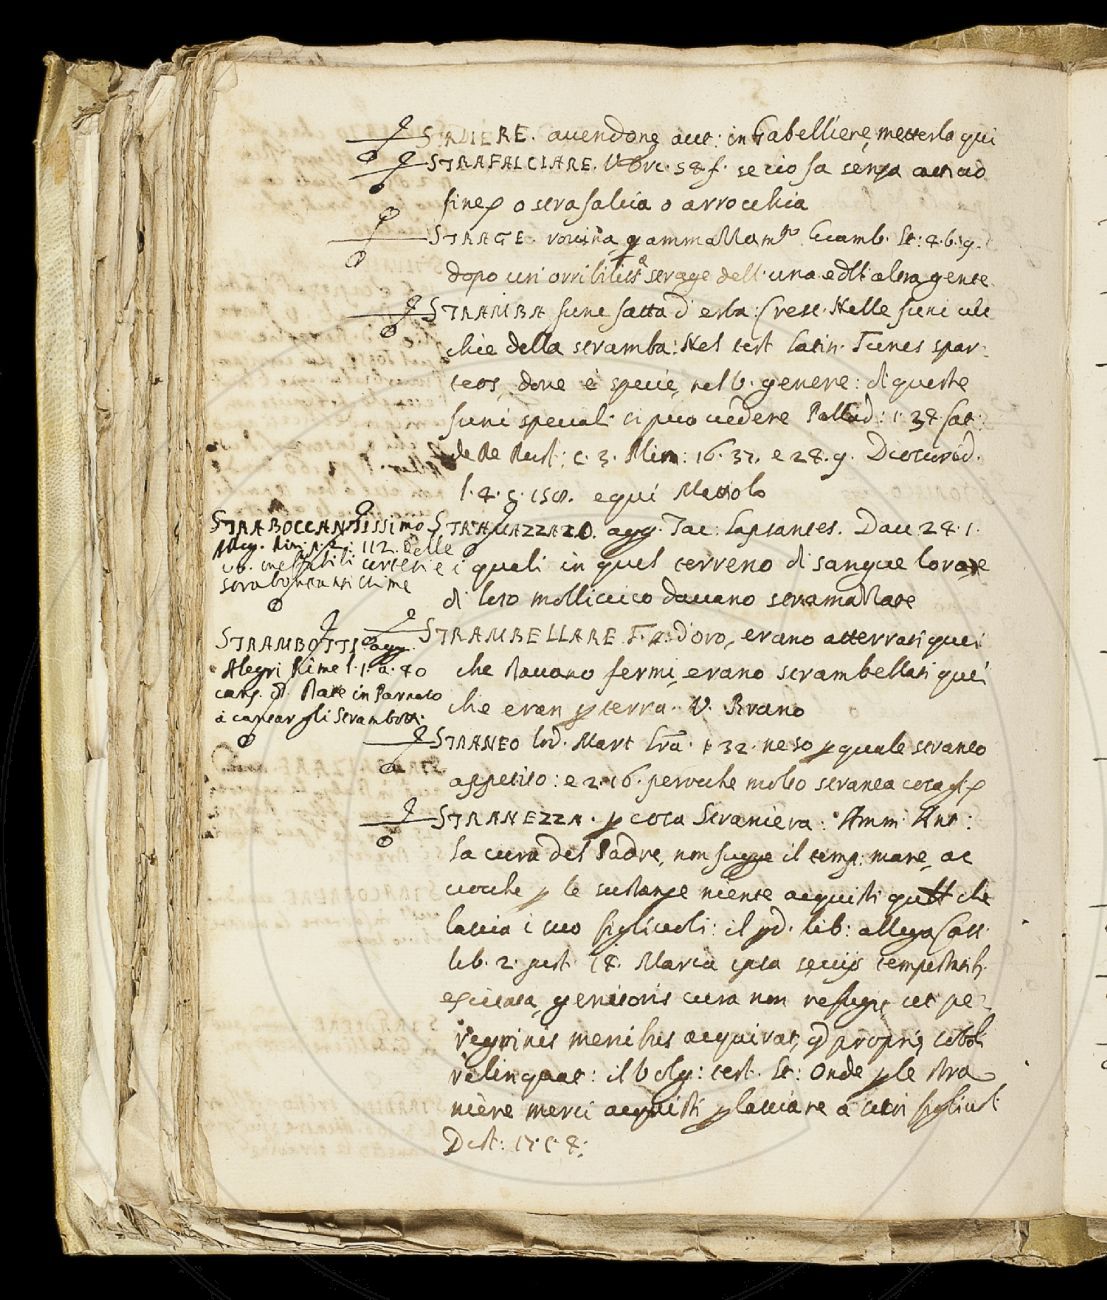 STRADIERE. avendone aut: in Gabelliere, metterla qui
STRAFALCIARE. V. Orc. 58 f. se cio fa senza atto
fine o strafalcia o arrocchia
STRAGE. rovina, p ammazzam.to Giamb. St: 4. b. 9.
dopo un orribiliss.a strage dell' una e dll' altra gente
STRAMBA fune fatta d' erba: Cresc. Nelle funi vec
chie della stramba: Nel test latin. Funes spar-
teos, dove è specie, nel V. genere: di queste
funi speciali si puo vedere Pallad: 1. 38 Cat:
de Re Rust: c. 3. Plin: 16. 37. e 24. 9. Dioscorid.
l. 4. c. 158. e qui Mattiolo
STRABOCCANTISSIMO
Alleg. Rim. 112. delle
straboccantissime
STRAMAZZATO. agg. Tac: lapsantes. Dav 28. 1.
i quali in quel terreno di sangue lorare
di loto molliccico davano stramazzate
STRAMBOTTI agg.
Alegri Rime l. 1. a. 40
canz. di Rate in Parnaso
a cantar gli strambotti.
STRAMBELLARE T. a: d'oro, erano atterrati quei
che stavano fermi, erano strambellati quei
che eran p terra. V. Brano
STRANEO lod. Mart Lra. 132. ne so p quale straneo
appetito: e 216. perocche molto stranea cosa
STRANEZZA. p cosa Straniera: Amm. Ant:
la cura del Padre, non fugge il temp: mare, ac
ciocche p le sustanze niente acquisti quell che
lascia i suo figliuoli: il pd. lib: allega Cass.
lib. 2. just. 18. Maria ipsa sevis tempestatib.
excitata, genitoris cura non refugit ut pe-
regrinis mercibus acquirat, qd propris soboli
relinquat: il Volg: test. St: Onde p le stra
niere merci acquisti p lasciare a suoi figliuoli
Dist: 17. c. 4: